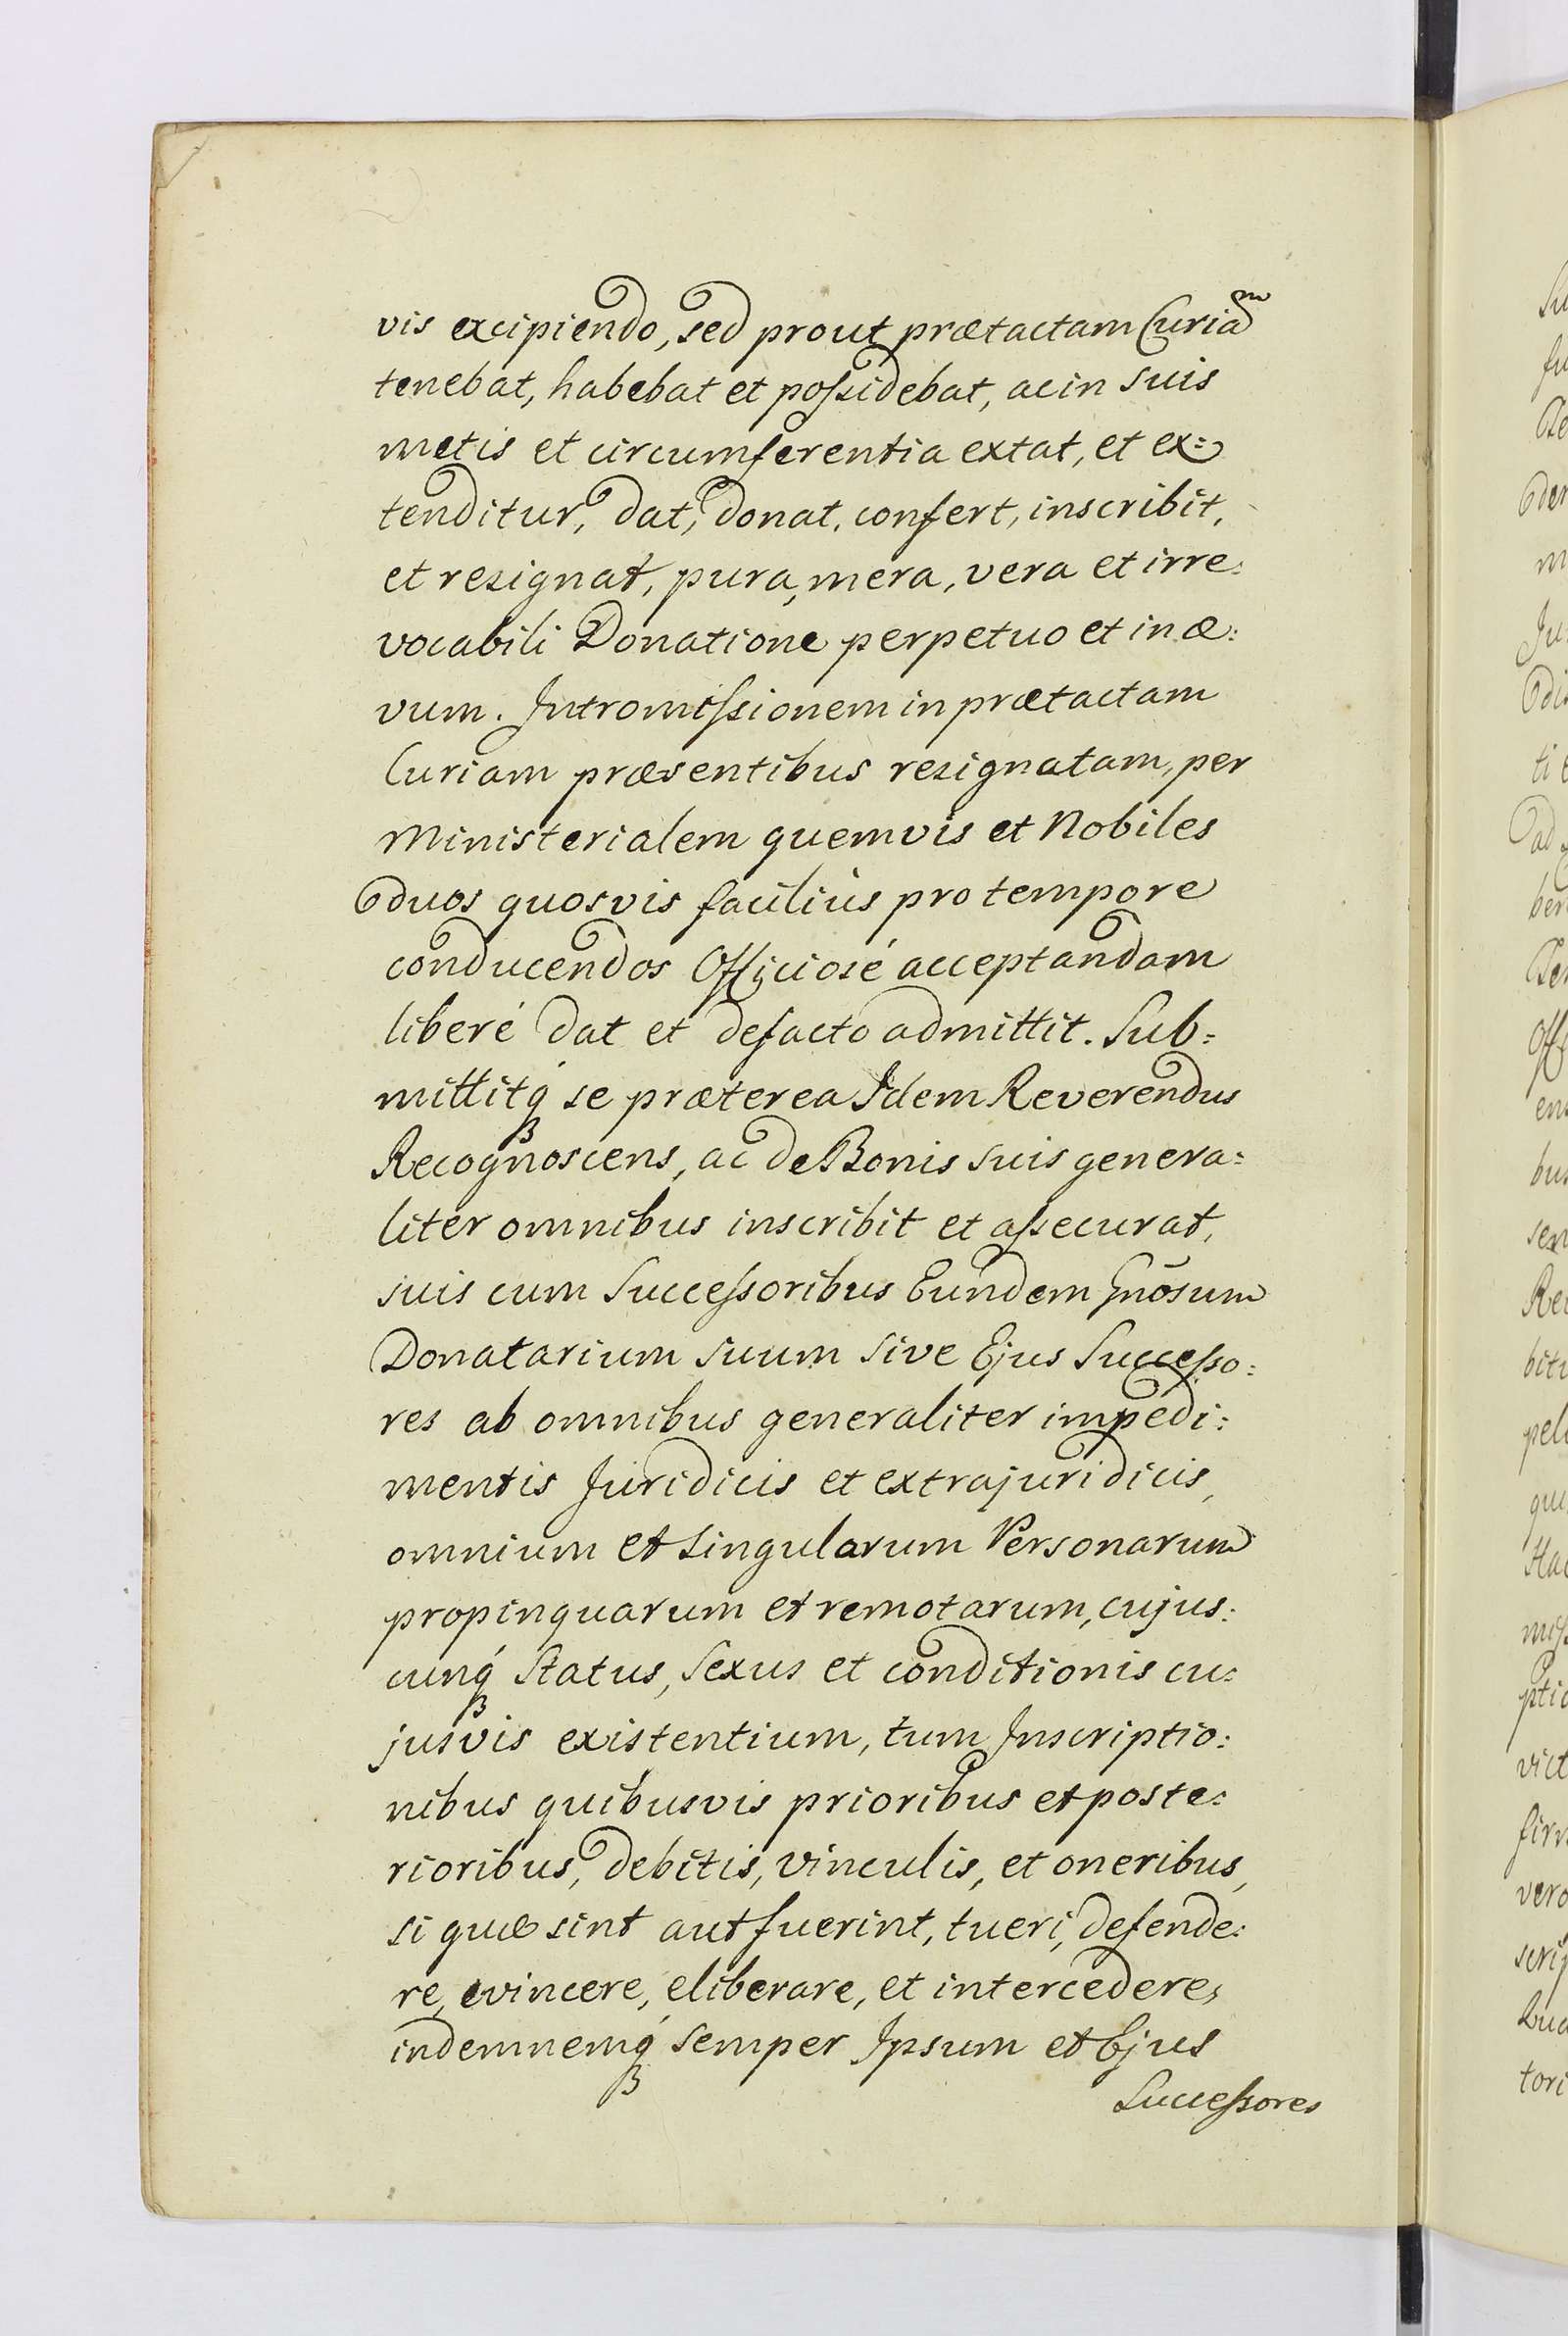 vis excipiendo, sed prout prætactam Curiam
tenebat, habebat et possidebat, ac in suis
metis et circumferentia extat, et ex=
tenditur, dat, donat, confert, inscribit,
et resignat, pura, mera, vera et irre:
vocabili Donatione perpetuo et in æ:
vum. Intromissionem in prætactam
Curiam præsentibus resignatam, per
Ministerialem quemvis et Nobiles
duos quosvis facilius pro tempore
conducendos Officiosé acceptandam
liberé dat et defacto admittit. Sub=
mittitq́ꝫ se præterea Idem Reverendus
Recognoscens, ac de Bonis suis genera=
liter omnibus inscribit et assecurat,
suis cum Successoribus Eundem Gnōsum
Donatarium suum sive Ejus Successo:
res ab omnibus generaliter impedi:
mentis Juridicis et extrajuridicis,
omnium et singularum Personarum
propinquarum et remotarum, cujus:
cunq́ꝫ Status, Sexus et conditionis cu:
jusvis existentium, tum Inscriptio:
nibus quibusvis prioribus et poste:
rioribus, debitis, vinculis, et oneribus,
si quæ sint aut fuerint, tueri, defende:
re, evincere, eliberare, et intercedere,
indemnemq́ꝫ semper Ipsum et Ejus
Successores